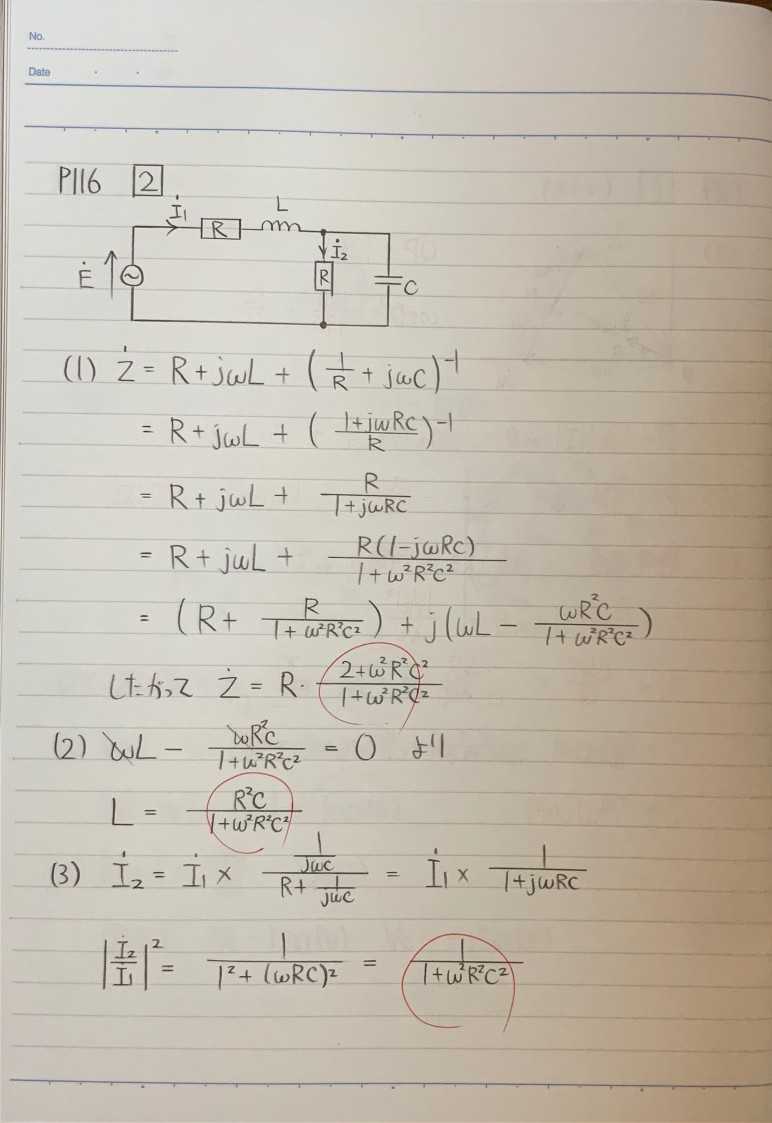 No.
Date
P116 [2]
İ₁ R L
Ė İ₂ R C
(1) Ż = R + jωL + (1/R + jωC)⁻¹
= R + jωL + ((1+jωRC)/R)⁻¹
= R + jωL + R/(1+jωRC)
= R + jωL + R(1-jωRC)/(1+ω²R²C²)
= (R + R/(1+ω²R²C²)) + j(ωL - ωR²C/(1+ω²R²C²))
したがって Ż = R・(2+ω²R²C²)/(1+ω²R²C²)
(2) ωL - ωR²C/(1+ω²R²C²) = 0 より
L = R²C/(1+ω²R²C²)
(3) İ₂ = İ₁ × (1/jωC)/(R + 1/jωC) = İ₁ × 1/(1+jωRC)
|İ₂/İ₁|² = 1/(1²+(ωRC)²) = 1/(1+ω²R²C²)